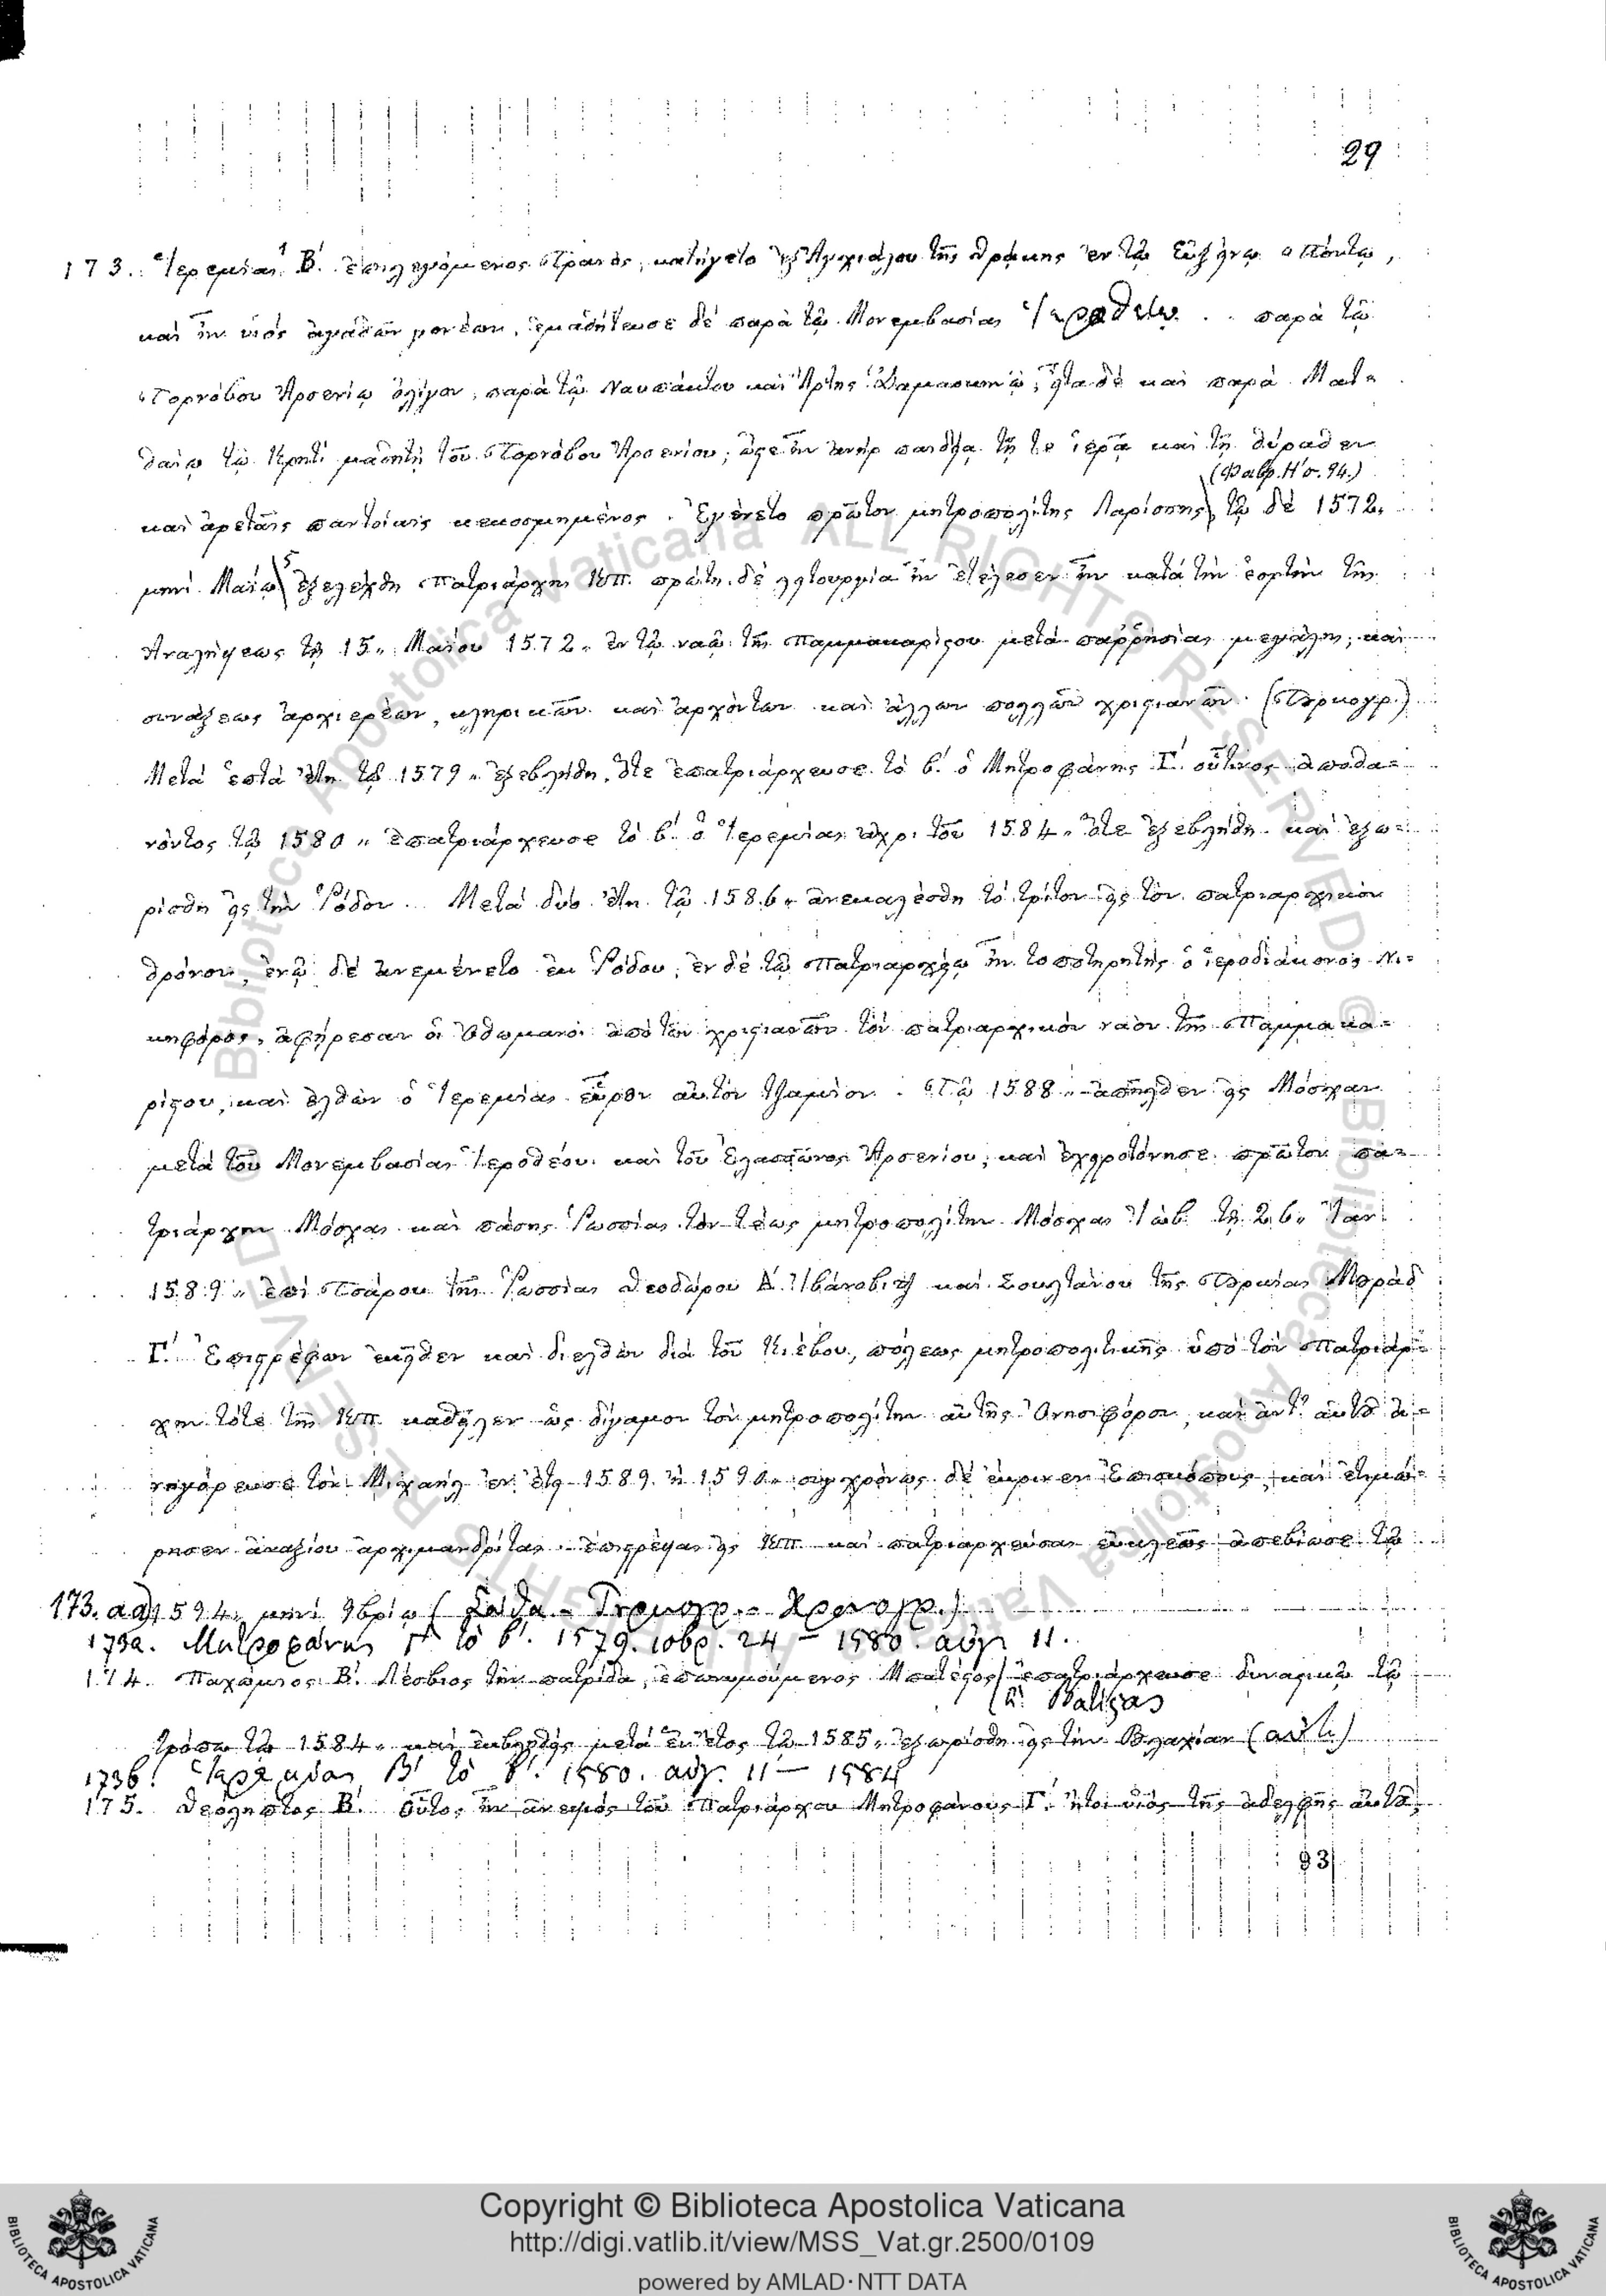 29
173. Ἱερεμίας Β΄. ἐπιλεγόμενος Τρανὸς, κατήγετο ἐξ Ἀγχιάλου τῆς Θράκης ἐν τῷ Εὐξείνῳ Πόντῳ,
καὶ ἦν υἱός ἀγαθῶν γονέων, ἐμαθήτευσε δέ παρὰ τῷ Μονεμβασίας Ἱεροθέῳ .. παρὰ τῷ
Τορνόβου Ἀρσενίῳ ὀλίγον, παρὰ τῷ Ναυπάκτου καὶ Ἄρτης Δαμασκηνῷ, εἶτα δέ καὶ παρὰ Ματ=
θαίῳ τῷ Κρητὶ μαθητῇ τοῦ Τορνόβου Ἀρσενίου, ὥςε ἦν ἀνὴρ παιδείᾳ τῇ τε ἱερᾷ καὶ τῇ θύραθεν
(Φαβρ. Η΄ σ. 94.)
καὶ ἀρεταῖς παντοίαις κεκοσμημένος. Ἐγένετο πρῶτον μητροπολίτης Λαρίσσης, τῷ δέ 1572,,
μηνί Μαΐῳ 5 ἐξελέχθη Πατριάρχης Κπ. πρώτη δέ λειτουργία ἣν ἐτέλεσεν ἦν κατά τὴν ἑορτὴν τῆς
Ἀναλήψεως τῇ 15,, Μαΐου 1572,, ἐν τῷ ναῷ τῆς Παμμακαρίςου μετά παῤῥησίας μεγάλης, καὶ
συνάξεως ἀρχιερέων, κληρικῶν καὶ ἀρχόντων καὶ ἄλλων πολλῶν χριςιανῶν. (Τȣρκογρ.)
Μετά ἑπτά ἔτη τῷ 1579,, ἐξεβλήθη, ὅτε ἐπατριάρχευσε τό β΄. ὁ Μητροφάνης Γ΄. οὗτινος ἀποθα=
νόντος τῷ 1580,, ἐπατριάρχευσε τό β΄. ὁ Ἱερεμίας ἄχρι τοῦ 1584,, ὅτε ἐξεβλήθη καὶ ἐξω=
ρίσθη εἰς τὴν Ῥόδον. Μετά δύο ἔτη τῷ 1586,, ἀνεκαλέσθη τό τρίτον εἰς τὸν πατριαρχικόν
θρόνον, ἐνῷ δέ ἀνεμένετο ἐκ Ῥόδου, ἐν δέ τῷ Πατριαρχείῳ ἦν τοποτηρητής ὁ ἱεροδιάκονος Νι=
κηφόρος, ἀφῄρεσαν οἱ Ὀθωμανοί ἀπό τῶν χριςιανῶν τόν πατριαρχικόν ναόν τῆς Παμμακα=
ρίςου, καὶ ἐλθών ὁ Ἱερεμίας εὗρεν αὐτόν τζαμίον. Τῷ 1588,, ἀπῆλθεν εἰς Μόσχαν
μετά τοῦ Μονεμβασίας Ἱεροθέου καὶ τοῦ Ἐλασσῶνος Ἀρσενίου, καὶ ἐχειροτόνησε πρῶτον πα=
τριάρχην Μόσχας καὶ πάσης Ῥωσσίας τόν τέως μητροπολίτην Μόσχας Ἰώβ τῇ 26,, Ἰαν.
1589,, ἐπί Τσάρου τῆς Ῥωσσίας Θεοδώρου Α΄. Ἰβάνοβιτζ καὶ Σουλτάνου τῆς Τȣρκίας Μȣράδ
Γ΄. Ἐπιςρέφων ἐκεῖθεν καὶ διελθών διά τοῦ Κιέβου, πόλεως μητροπολιτικῆς ὑπό τόν Πατριάρ=
χην τότε τῆς Κπ. καθεῖλεν ὡς δίγαμον τόν μητροπολίτην αὐτῆς Ὀνησιφόρον, καὶ ἀντ' αὐτȣ ἀ=
νηγόρευσε τόν Μιχαήλ ἐν ἔτει 1589 ἤ 1590,, συγχρόνως δέ ἔκρινεν Ἐπισκόπους, καὶ ἐτιμώ=
ρησεν ἀναξίου ἀρχιμανδρίτας. ἐπιςρέψας εἰς Κπ. καὶ πατριαρχεύσας εὐκλεῶς ἀπεβίωσε τῷ
1594,, μηνί 9βρίῳ (Σάθα - Τȣρκογρ. - Χρονογρ.)
173α. Μητροφάνης Γ΄ τὸ β΄. 1579. 10βρ. 24 – 1580. αὐγ. 11.
174. Παχώμιος Β΄. Λέσβιος τὴν πατρίδα, ἐπονομούμενος Μπατέςος, ἐπατριάρχευσε δυναςικῷ τῷ
(ἤ Batiςas
τρόπῳ τῷ 1584,, καὶ ἐκβληθείς μετά ἕν ἔτος τῷ 1585,, ἐξωρίσθη εἰς τὴν Βλαχίαν (αὐτ.)
173b. Ἱερεμίας Β΄ τὸ β΄. 1580. αὐγ. 11 – 1584
175. Θεόληπτος Β΄. Οὗτος ἦν ἀνεψιός τοῦ Πατριάρχου Μητροφάνους Γ΄. ἤτοι υἱός τῆς ἀδελφῆς αὐτȣ,
93
Copyright © Biblioteca Apostolica Vaticana
http://digi.vatlib.it/view/MSS_Vat.gr.2500/0109
powered by AMLAD·NTT DATA